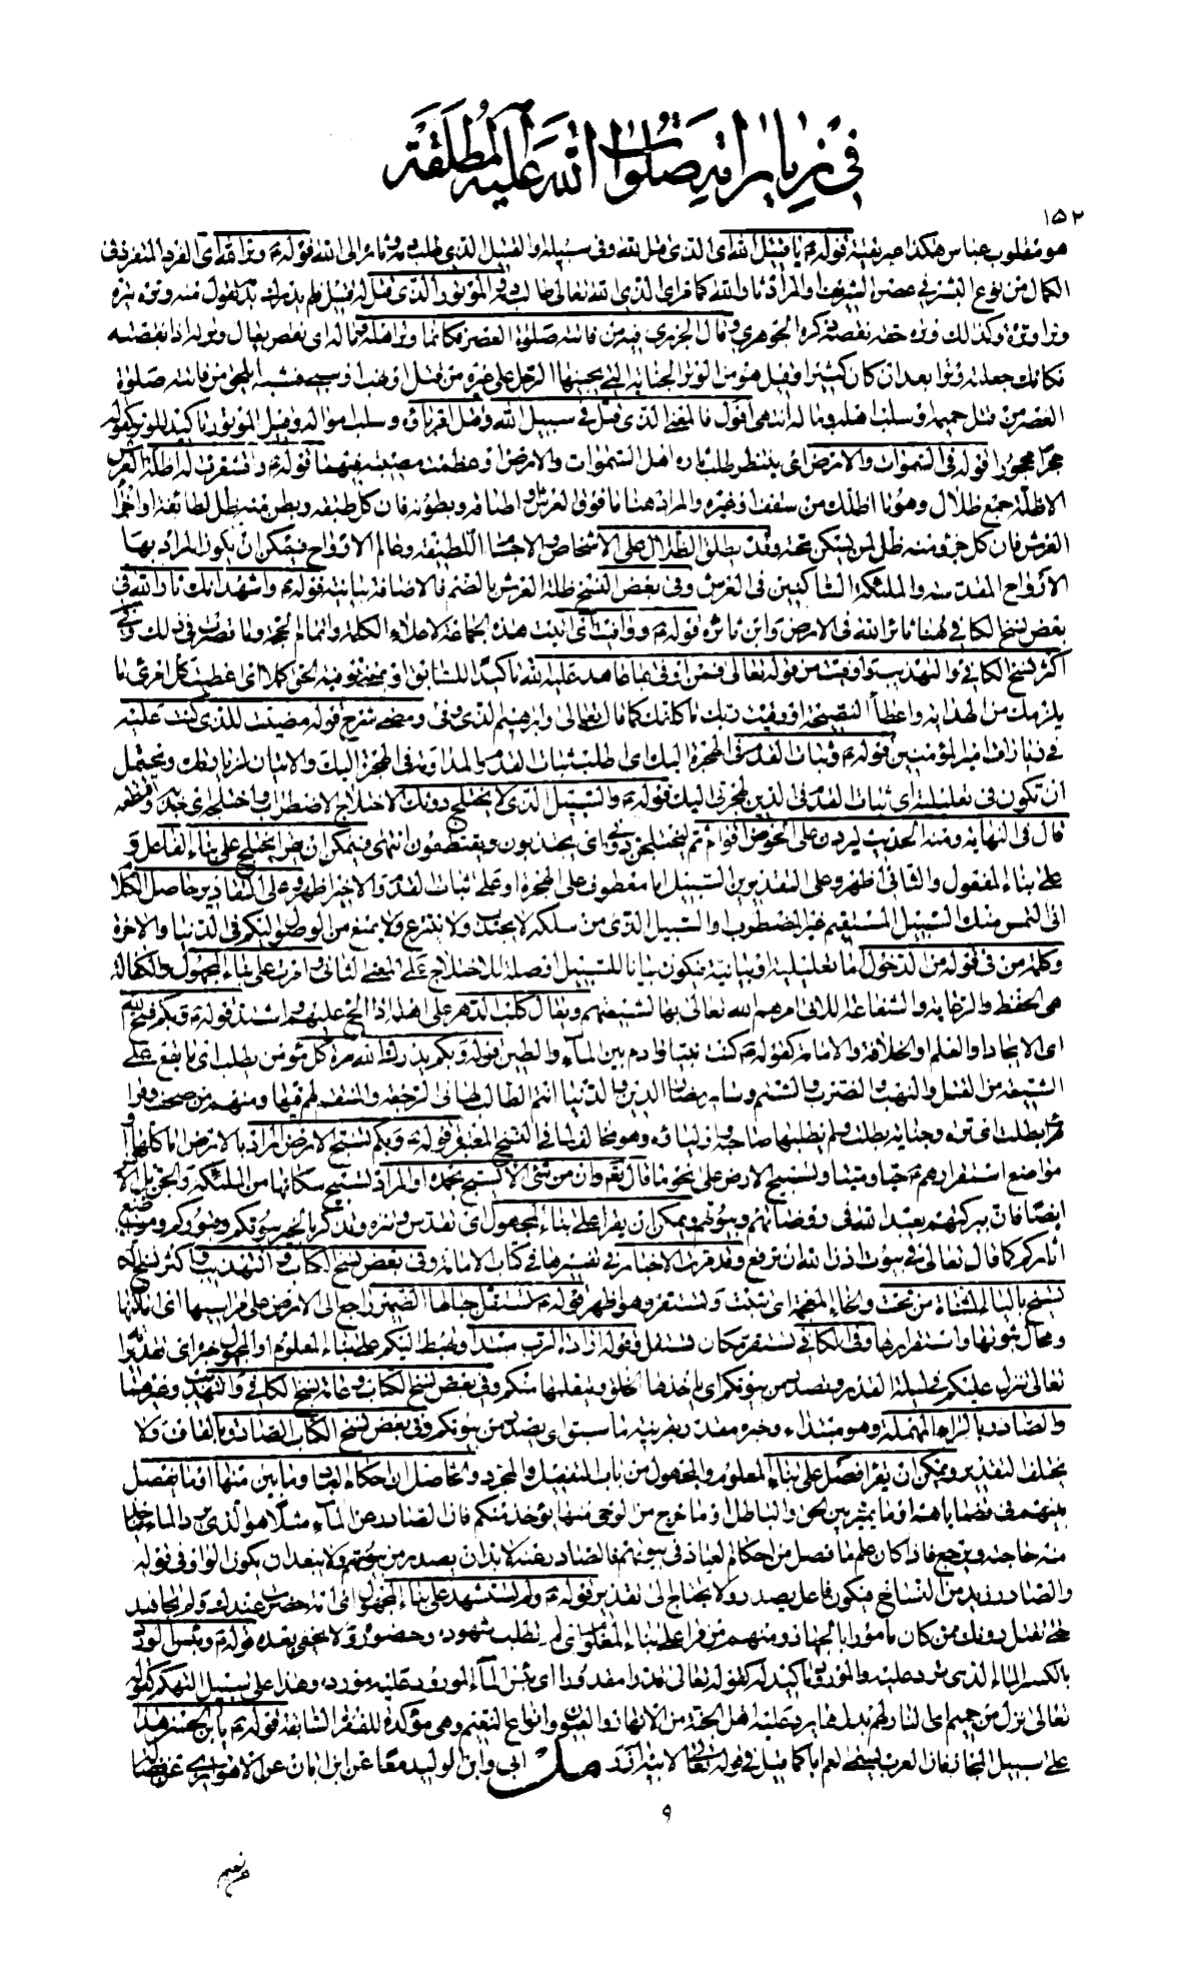 في زياراته صلوات الله عليه المطلقة
١٥٢
هو مقلوب عباس هكذا عبر تقية قوله ع يا قتيل الله اى الذى قتل لله وفى سبيله او القتيل الذى طلب دمه وثاره الى الله قوله ع وترالله اى الفرد المتفرد فى
الكمال من نوع البشر فى عصره الشريف او المراد ثار الله كما مر اى الذى الله تعالى طالب دمه والموتور الذى قتل له قتيل فلم يدرك بدمه تقول منه وتره يتره
وترا وترة وكذلك وتره حقه نقصه ذكره الجوهرى وقال الجزرى فيه من فاتته صلوة العصر فكانما وتر اهله وماله اى نقص يقال وترته اذا نقصته
فكانك جعلته وترا بعد ان كان كثيرا وقيل هو من الوتر الجناية التى يجنيها الرجل على غيره من قتل او نهب او سبى فشبه ما يلحق من فاتته صلوة
العصر بمن قتل حميمه او سلب اهله وماله انتهى اقول فالمعنى الذى قتل فى سبيل الله وقتل اقرباؤه وسلب امواله وقيل الموتور تاكيد للوتر كقوله
حجرا محجورا قوله فى السموات والارض اى ينتظر طلب ثاره اهل السموات والارض او عظمت مصيبته فيهما قوله ع واقشعرت له اظلة العرش
الاظلة جمع ظلال وهو ما اظلك من سقف او غيره والمراد هنا ما فوق العرش او اطباقه وبطونه فان كل طبقة وبطن منه ظل لطائفة او اجزاء
العرش فان كل جزء منه ظل لمن يسكن تحته وقد يطلق الظلال على الاشخاص والاجسام اللطيفة وعالم الارواح فيمكن ان يكون المراد بها
الارواح المقدسة والملئكة الساكنين فى العرش وفى بعض النسخ ظلة العرش بالضم فالاضافة بيانية قوله ع واشهد انك ثار الله فى
بعض نسخ الكافى هنا ثائر الله فى الارض وابن ثائره قوله ع ووافيت اى اتيت هذه الجماعة لاعلاء الكلمة واتمام الحجة وما قصرت فى ذلك وفى
اكثر نسخ الكافى والتهذيب واوفيت من قوله تعالى فمن اوفى بما عاهد عليه الله تاكيدا للسابق او بمعنى توفية الحق كملا اى اعطيت كل امرئ ما
يلزمك من الهداية واعطاء النصيحة او وفيت ربك ما كلفك كما قال تعالى وابراهيم الذى وفى ومضى شرح قوله مضيت للذى كنت عليه
فى زيارات امير المؤمنين قوله ع وثبات القدم فى الهجرة اليك اى اطلب ثبات القدم والمداومة فى الهجرة اليك والاتيان لزيارتك ويحتمل
ان تكون فى تعليلية اى ثبات القدم فى الدين لهجرتى اليك قوله ع والسبيل الذى لا يختلج دونك الاختلاج الاضطراب واختلجه اى جذبه واقتطعه
قال فى النهاية ومنه الحديث ليردن على الحوض اقوام ثم ليختلجن دونى اى يجتذبون ويقتطعون انتهى فيمكن ان يقرا يختلج على بناء الفاعل و
على بناء المفعول والثانى اظهر وعلى التقديرين السبيل اما معطوف على الهجرة او على ثبات القدم والاخير اظهر وعلى التقادير حاصل الكلام
انى التمس منك السبيل المستقيم غير المضطرب او السبيل الذى من سلكه لا يجتذب ولا ينتزع ولا يمنع من الوصول اليكم فى الدنيا والاخرة
وكلمة من فى قوله من الدخول اما تعليلية او بيانية فيكون بيانا للسبيل او صلة للاختلاج على المعنى الثانى وامرت على بناء المجهول والكفالة
هى الحفظ والرعاية والشفاعة اللاتى امرهم الله تعالى بها لشيعتهم ويقال كلب الدهر على اهله اذا الح عليهم واشتد قوله ع وبكم فتح الله
اى الايجاد او العلم والخلافة والامامة كقوله ص كنت نبيا وادم بين الماء والطين قوله وبكم يدرك الله ترة كل مؤمن يطلب اى ما يقع على
الشيعة من القتل والنهب والضرب والشتم وساير مضار الدين والدنيا انتم الطالب لها فى الرجعة والمنتقم لهم فيها ومنهم من صحف وقرا
ثرة يطلب اى ترة وجناية يطلب ولم يطلبها صاحبه او اولياؤه وهو مخالف لما فى النسخ المعتبرة قوله ع وبكم تسبح الارض المراد بالارض اما كلها او
مواضع استقرارهم ع حيا وميتا وتسبيح الارض على نحو ما قال تع وان من شئ الا يسبح بحمده او المراد تسبيح سكانها من الملئكة والجن بل الانس
ايضا فان ببركتهم يعبد الله فى روضاتهم وبيوتهم ويمكن ان يقرا على بناء المجهول اى تقدس وتنزه وتذكر بالخير بيوتكم وقبوركم ومواضع
اثاركم كما قال تعالى فى بيوت اذن الله ان ترفع وقد مرت الاخبار فى تفسيرها فى كتاب الامامة وفى بعض نسخ الكتاب وفى التهذيب واكثر نسخ كا
تسيخ بالياء المثناة من تحت والخاء المعجمة اى تثبت وتستقر وهو اظهر قوله ع تستقل جبالها الضمير راجع الى الارض على مراسيها اى اماكنها
ومحال ثبوتها واستقرارها وفى الكافى تستقر مكان تستقل قوله ارادة الرب مبتدا وتهبط اليكم على بناء المعلوم او المجهول خبر اى تقديراته
تعالى تنزل عليكم فى ليلة القدر وتصدر من بيوتكم اى ياخذها الخلق ويتعلمها منكم وفى بعض نسخ الكتاب وعامة نسخ الكافى والتهذيب وغيرهما
والصادر بالراء المهملة وهو مبتدا وخبره مقدر بقرينة ما سبق اى يصدر من بيوتكم وفى بعض نسخ الكتاب الصادق بالقاف ولا
يختلف التقدير ويمكن ان يقرا فصل على بناء المعلوم والمجهول من باب التفعيل والمجرد والحاصل ان احكام العباد وما بين منها او ما يفصل
بينهم فى قضاياهم او ما يميز بين الحق والباطل او ما خرج من الوحى منها يؤخذ منكم فان الصادر عن الماء مثلا هو الذى يرد الماء فياخذ
منه حاجته ويرجع فاذا كان علم ما فصل من احكام العباد فى بيوتهم فالصادر عنه لا بد ان يصدر من بيوتهم ولا يبعد ان يكون الواو فى قوله
والصادر زيد من النساخ فيكون فاعل يصدر ولا يحتاج الى تقدير قوله ع ولم استشهد على بناء المجهول اى انه حضرت عندك ولم اقتل
حتى تقتل دونك ممن كان مأمورا بالجهاد ومنهم من قرا على بناء المعلوم اى لم تطلب شهوده وحضوره ولا يخفى بعده قوله ع وبئس الورد
بالكسر الماء الذى ترد عليه والمورود تاكيد له كقوله تعالى قدرا مقدورا اى بئس الماء المورود عليه مورده وهذا على سبيل التهكم كقوله
تعالى نزل من حميم اى النار لهم بدل مما يرد عليه اهل الجنة من الانهار والعيون وانواع النعيم وهى مؤكدة للفقرة السابقة قوله ع يابن الحسين هذا
على سبيل المجاز فان العرب يسمى العم ابا كما قيل فى قوله تعالى لابيه آزر مل ابى وابن الوليد معا عن ابن ابان عن الاهوازى عن فضالة
٩
عن نعيم